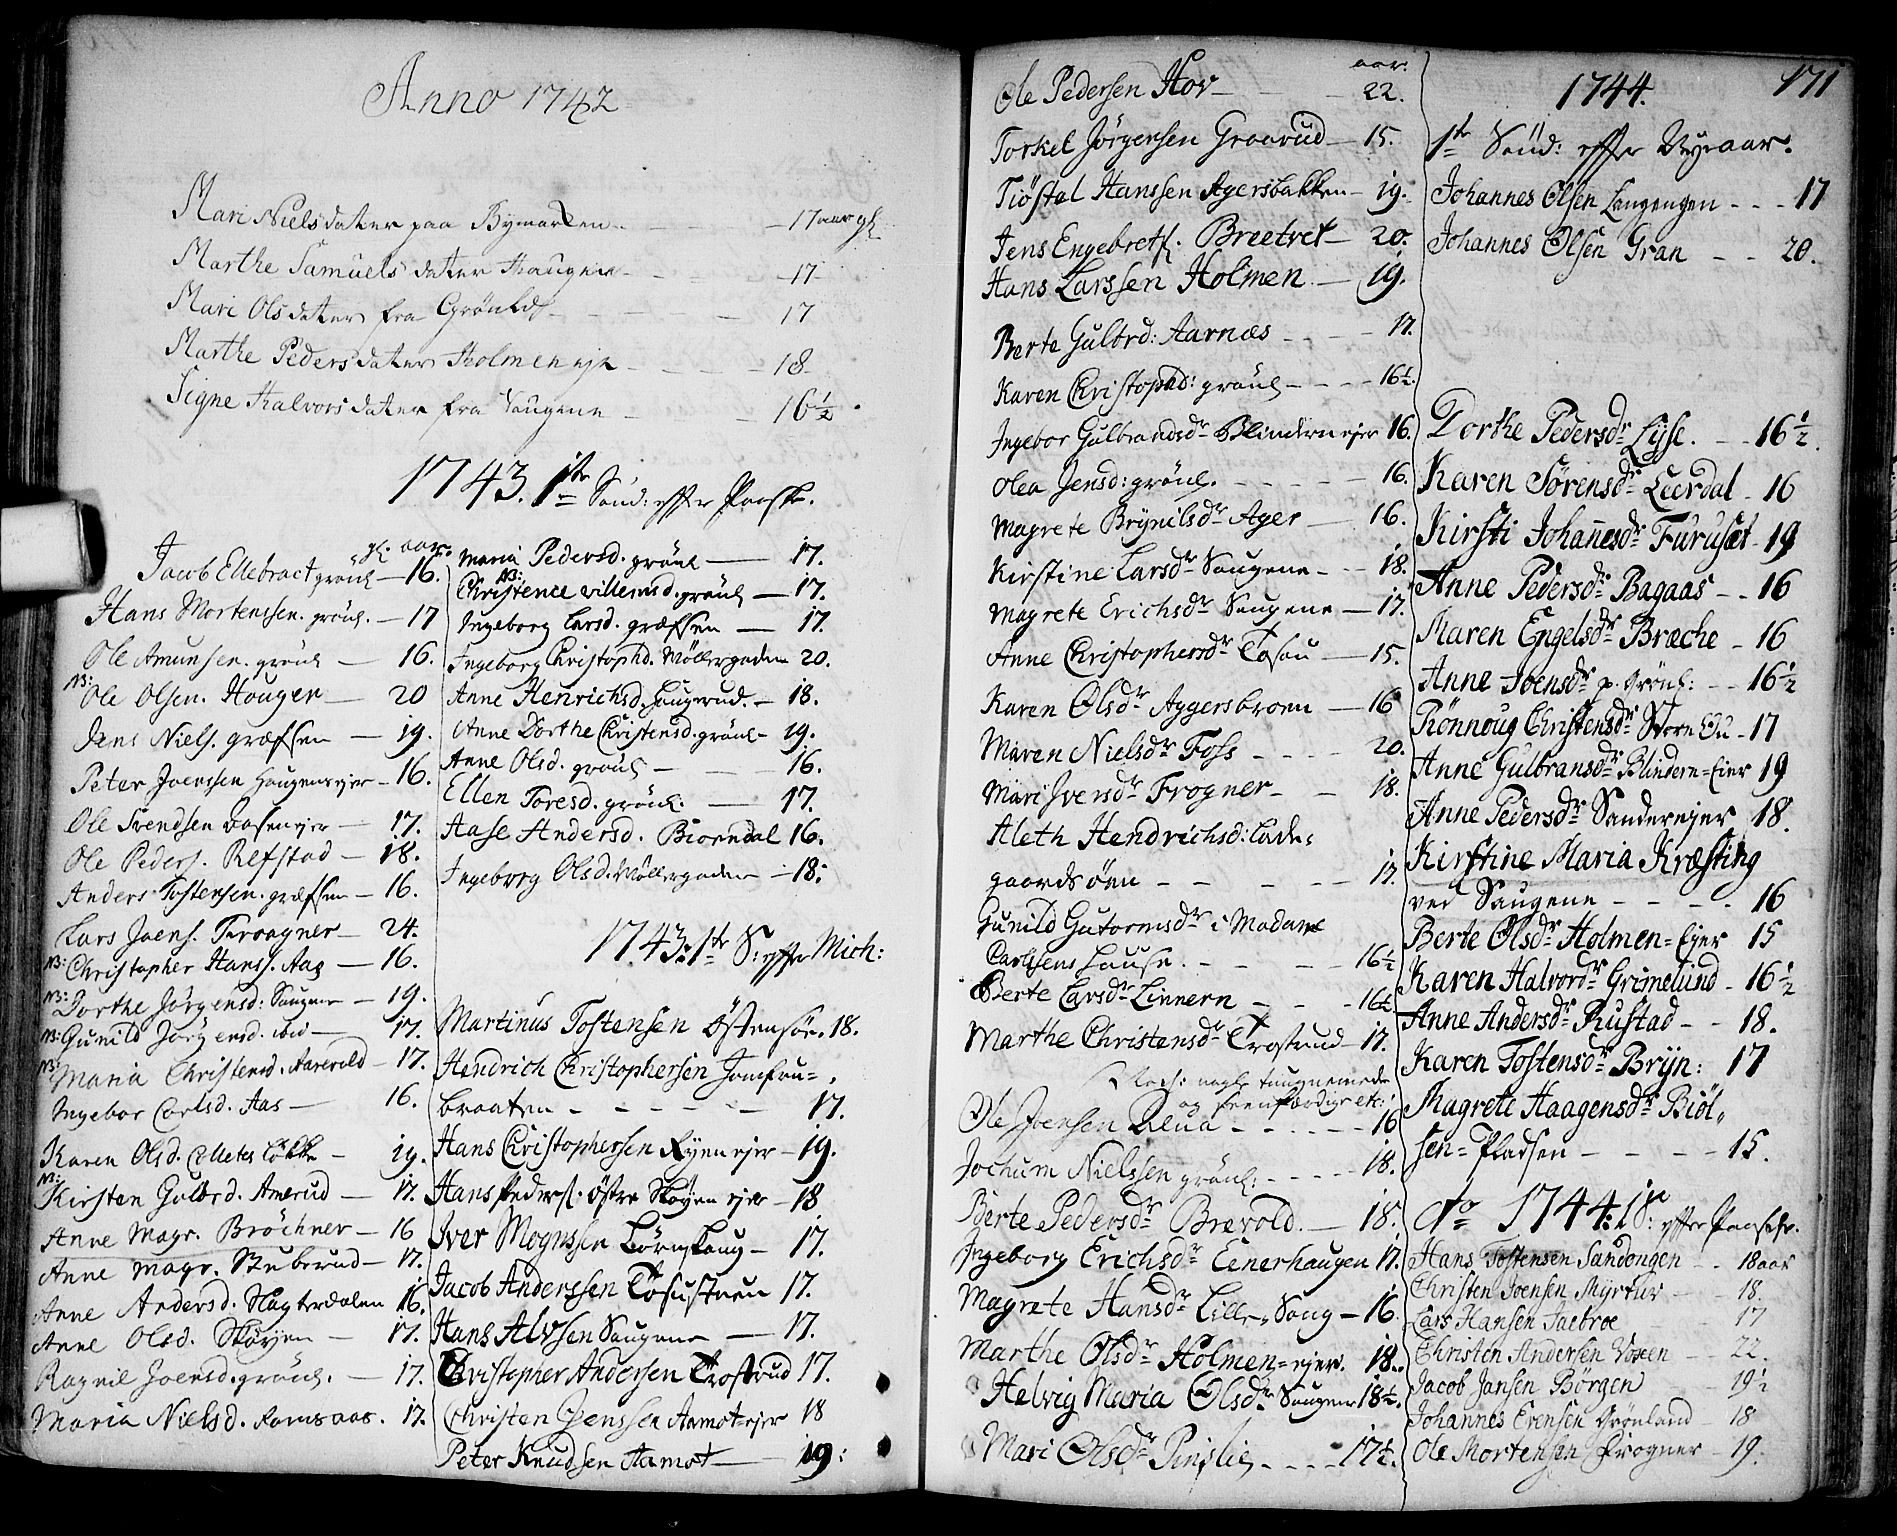 Anno 1742
Mari Nielsdatter paa Bymarken - 17 aar gl
Marthe Samuels datter Haugene - 17
Mari Olsdatter fra Grönld - 17
Marthe Pedersdatter Holmenejr - 18
Signe Halvors datter fra Saugene - 16½.
1743. 1te Sönd: effter Paaske.
gl. aar.
Jacob Ellebract grönl - 16.
Hans Mortenssen. grönl. - 17
Ole Amunsen. grönl - 16.
NB:
Ole Olsen. Hougen - 20
Jens Niels. græfsen - 19.
Peter Joenssen Haugensejer - 16.
Ole Svendsen aasen ejer - 17.
Ole Peders. Refstad - 18.
Anders Tostensen. græfsen - 16.
Lars Joens. Froagner - 24.
NB: Christopher Hanss. Aas - 16.
NB: Dorthe Jörgensd: Saugene - 19.
NB: Gunild Jörgensd. ibid - 17.
NB: Maria Christensd. Aarevold - 17.
Ingebor Carlsd. Aas - 16.
Karen Olsd. Colletes Lökke - 19.
NB:
Kirsten Gulbrd. Amerud - 17.
Anne Magr. Bröchner - 16
Anne Magr. Stuberud - 17.
Anne Andersd. Slagterdalen 16.
Anne Olsd. Skøyen - 17.
Ragnil Joensd. grönl. - 17.
Maria Nielsd. Ramsaas. - 17.
Maria Pedersd. grönl - 17.
NB:
Christence Villemsd. grönl - 17.
Ingeborg Larsd. græfsen - 17.
Ingeborg Christophd. Möllergaden 20.
Anne Henrichsd. Haugerud. - 18.
Anne Dorthe Christensd. grönl - 19.
Anne Olsd. grönl - 16.
Ellen Toresd. grönl. - 17.
Aase Andersd. Biörndal 16.
Ingeborg Olsd. Möllergaden - 18:
1743: 1te S: effter Mich:
Martinus Tostensen Östensöe. 18.
Hendrich Christophersen Jomfru=
braaten - 17.
Hans Christophersen Ryen ejer - 19.
Hans Peders. östre Skøyen ejer - 18
Iver Mognssen Börnshaug - 17.
Jacob Anderssen Tosustuen 17.
Hans Alvsen Saugene - 17.
Christopher Andersen Trostrud 17.
Christen Jenssen Aamot=ejer 18
Peter Knudsen Aamot - 19:
aar.
Ole Pedersen Hov - 22.
Torkel Jörgensen Graavud - 15.
Tiöstal Hanssen Agersbakken - 19.
Jens Engebrets. Breetvet - 20.
Hans Larssen Holmen. - 19.
Berte Gulbrd: Aarnæs - 17.
Karen Christophd: grönl - 16½.
Ingebor Gulbrandsdr Blindern ejer 16.
Olea Jensd: grönl. - 16.
Magrete Brynilsdr Ager - 16.
Kirstine Larsdr Saugene - 18.
Magrete Erichsdr Saugene - 17.
Anne Christophersdr Tosau - 15.
Karen Olsdr Aggersbroen - 16
Maren Nielsdr Foss - 20.
Mari Iversdr Frogner - 18.
Aleth Hendrichsd: Lade=
gaardsöen - 17.
Gunild Gutormsdr i Madame
Carlsens Hause. - 16½
Berte Larsdr Linnern - 16½
Marthe Christensdr Trostrud - 17.
nogle tungnemede
og Eenfoldige etc:
Ole Joensen Deua - 16
Jochum Nielssen grönl: - 18.
Berte Pedersdr Brevold. - 18.
Ingeborg Erichsdr Eenerhaugen 17.
Magrete Hansdr Lille=Saug - 16.
Marthe Olsdr Holmen=ejer. 18.
Helvig Maria Olsdr Saugene 18½.
Mari Olsdr Pinslie - 17½.
1744. 171
1te Sönd: effter Nyeaar.
Johannes Olsen Langengen - 17
Johannes Olsen Gran - 20.
Dorthe Pedersdr Lyse. - 16½.
Karen Sörensdr Leerdal - 16
Kirsti Johannesdr Furuset - 19
Anne Pedersdr Bagaas - 16
Maren Engelsdr Bræche - 16
Anne Joensdr p. Grönl: - 16½
Rönnoug Christensdr Steen Eu - 17
Anne Gulbransdr Blindern=Ejer 19
Anne Pedersdr Sanderejer 18.
Kirstine Maria Kræfting
ved Saugene - 16
Berte Olsdr Holmen=Ejer 15
Karen Halvordr Grimelund - 16½
Anne Andersdr Rustad - 18.
Karen Tostensdr Bryn: 17
Magrete Haagensdr Biöl=
sen=Pladsen - 15.
Ao 1744: 1 S: effter Paaske.
Hans Tostensen Sandongen - 18 aar
Christen Joensen Myrtur - 18.
Lars Hansen Jacbroe 17
Christen Andersen Voxen - 22.
Jacob Jansen Borgen - 19½
Johannes Evensen Grönland - 18
Ole Mortensen Frogner - 19.